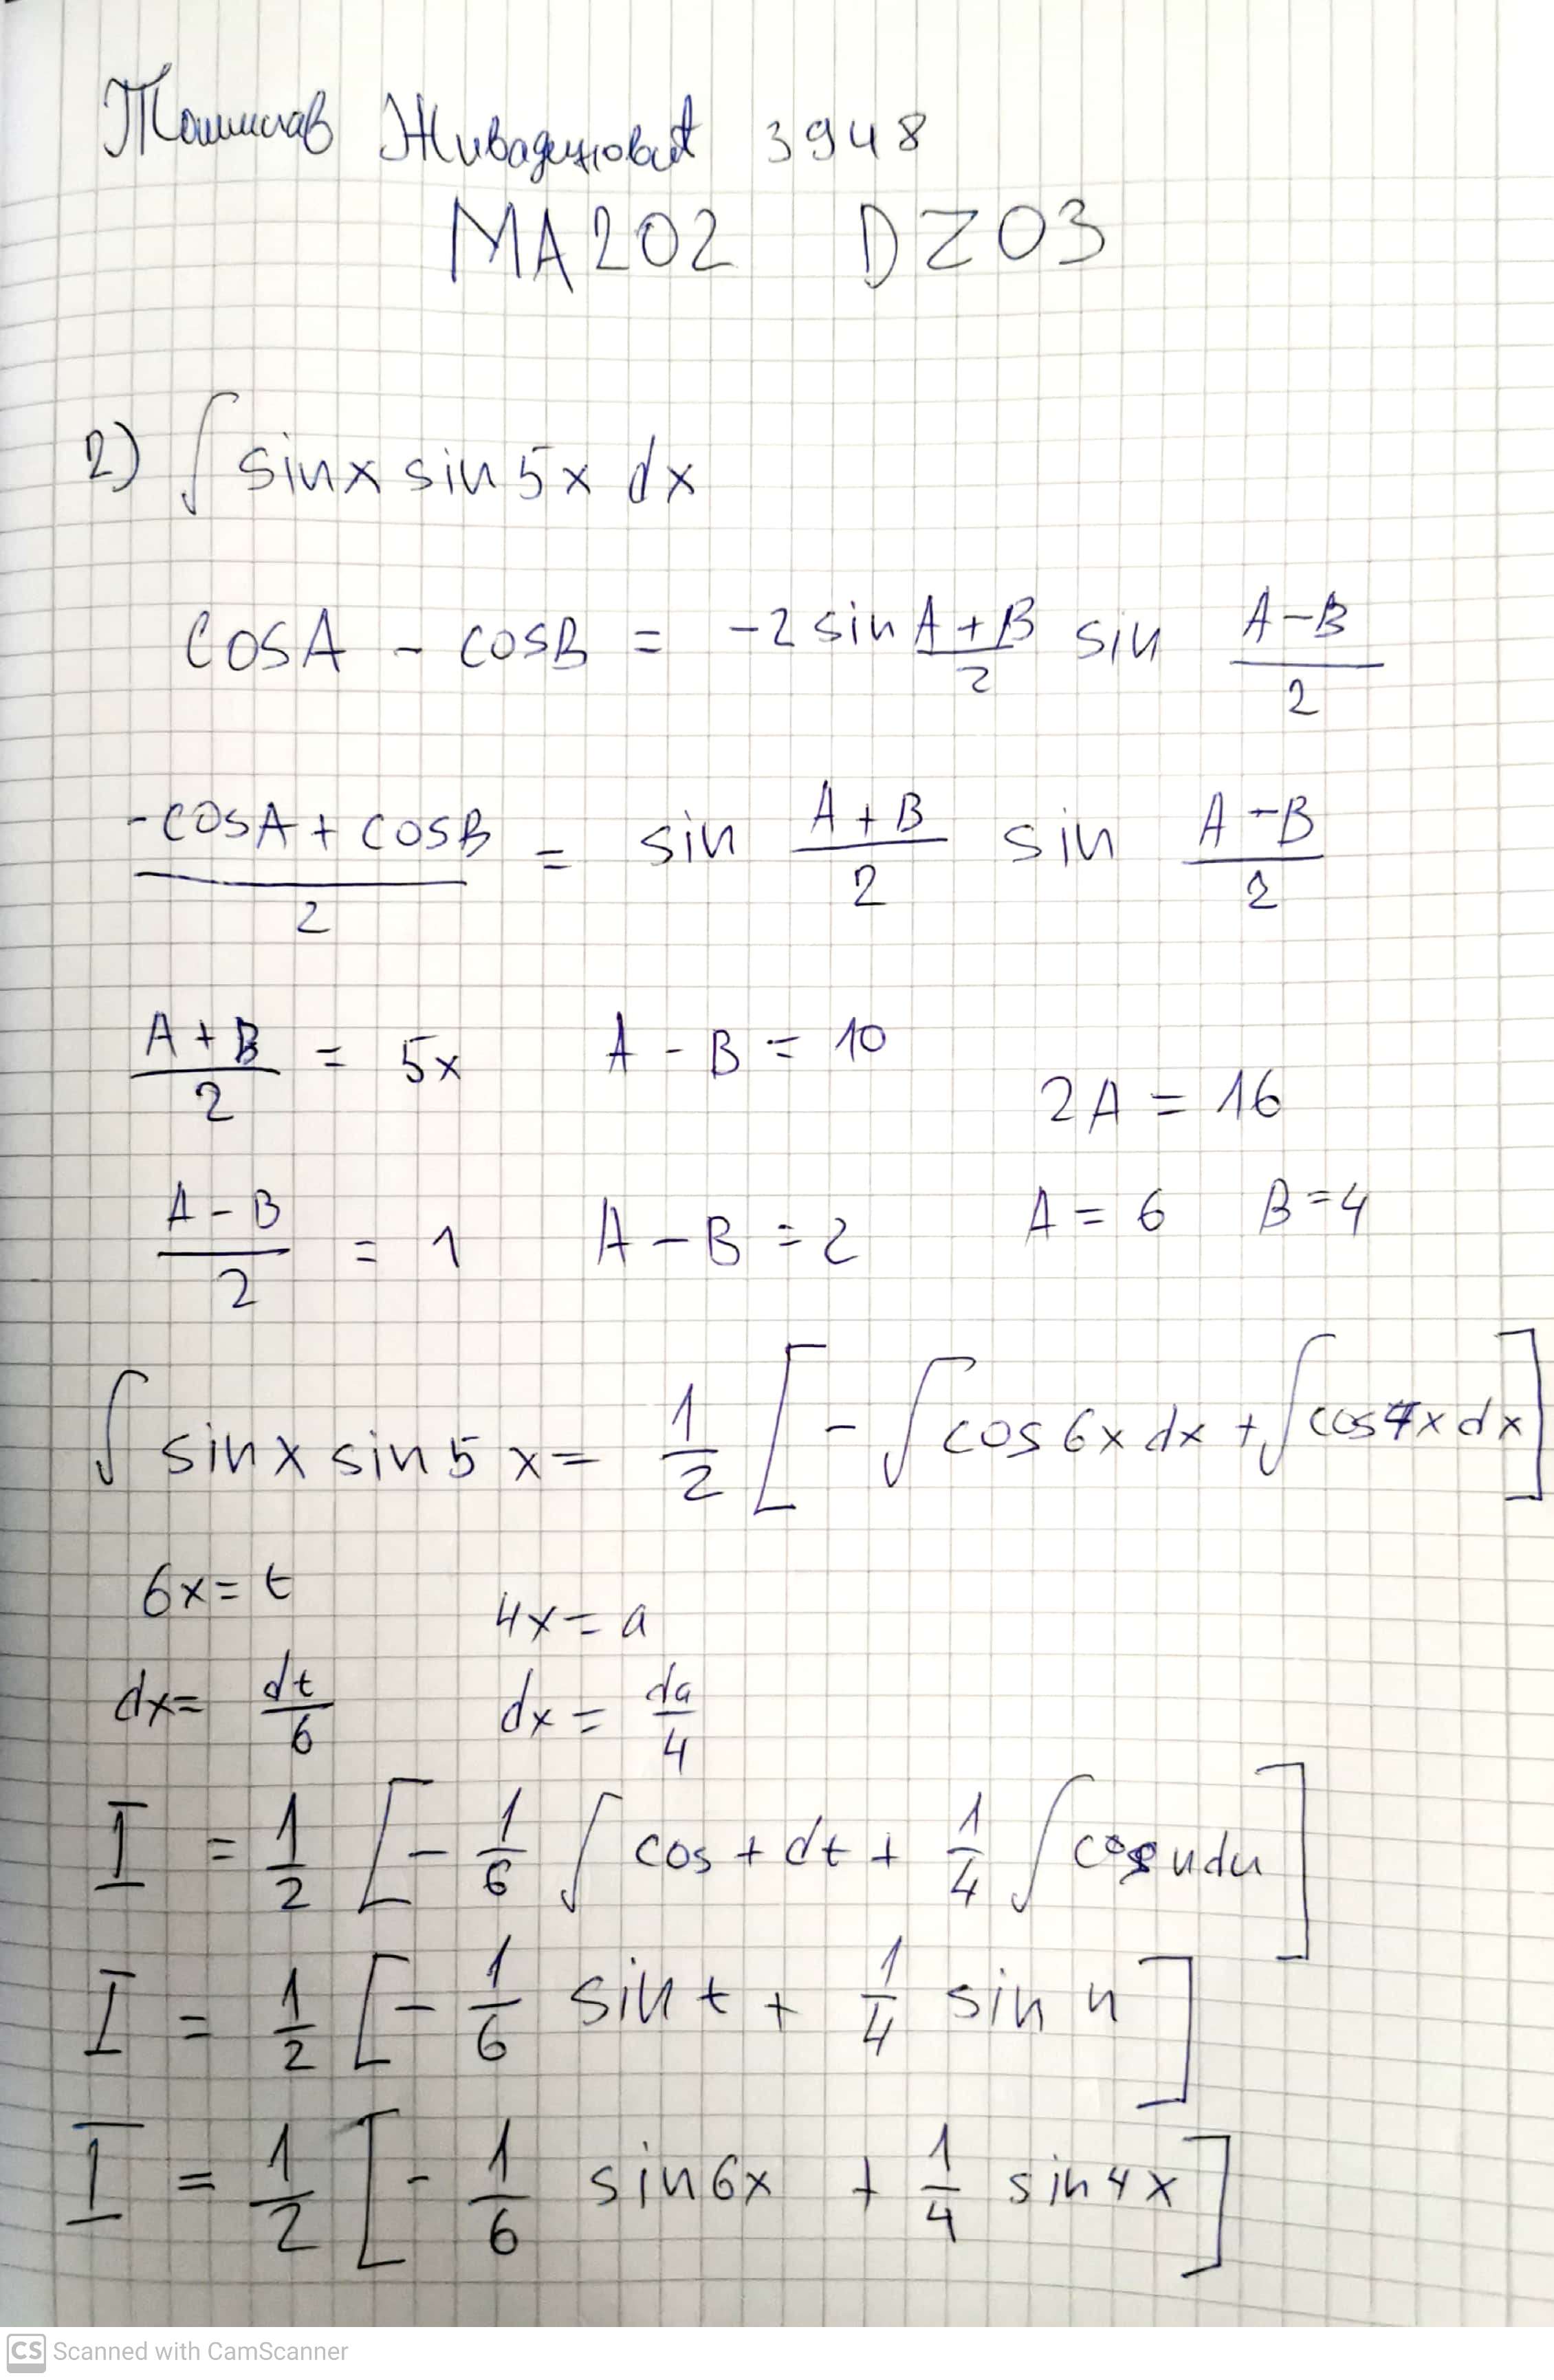 Томислав Живадиновић 3948
MA202 DZ03
2) ∫ sinx sin5x dx
cosA - cosB = -2 sin (A+B)/2 sin (A-B)/2
(-cosA + cosB)/2 = sin (A+B)/2 sin (A-B)/2
(A+B)/2 = 5x A - B = 10
2A = 16
(A-B)/2 = 1 A - B = 2 A = 6 B = 4
∫ sinx sin5x = 1/2 [ - ∫ cos6x dx + ∫ cos4x dx ]
6x = t 4x = a
dx = dt/6 dx = da/4
I = 1/2 [ - 1/6 ∫ cos t dt + 1/4 ∫ cos u du ]
I = 1/2 [ - 1/6 sin t + 1/4 sin u ]
I = 1/2 [ - 1/6 sin6x + 1/4 sin4x ]
CS Scanned with CamScanner